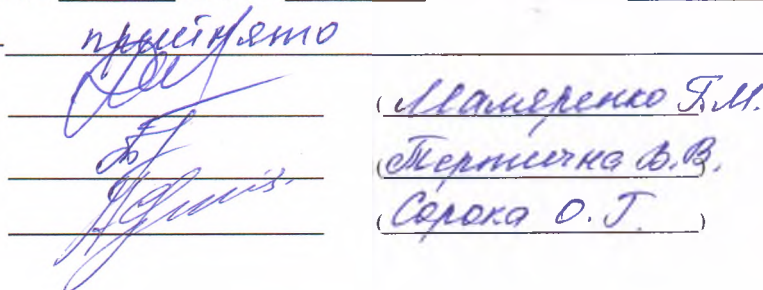 прийнято
( Маляренко Т.М.
( Терпична В.В. )
( Сорока О.Г. )